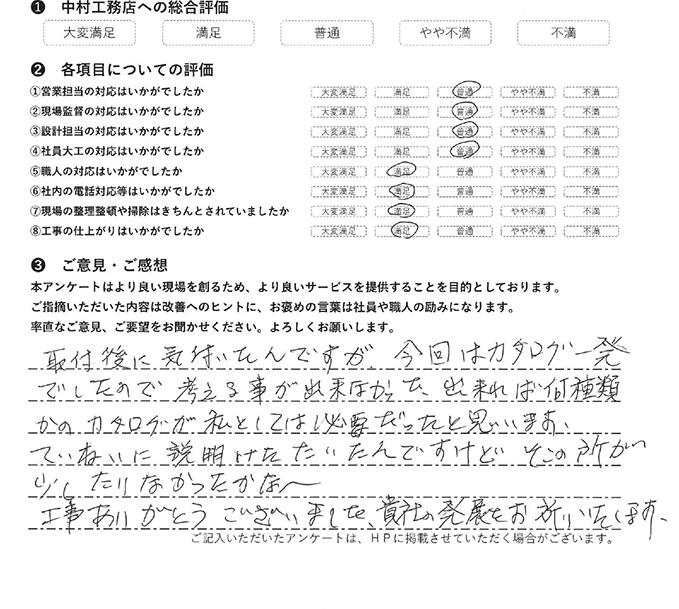 ❶ 中村工務店への総合評価
大変満足 満足 普通 やや不満 不満
❷ 各項目についての評価
①営業担当の対応はいかがでしたか 大変満足 満足 普通 やや不満 不満
②現場監督の対応はいかがでしたか 大変満足 満足 普通 やや不満 不満
③設計担当の対応はいかがでしたか 大変満足 満足 普通 やや不満 不満
④社員大工の対応はいかがでしたか 大変満足 満足 普通 やや不満 不満
⑤職人の対応はいかがでしたか 大変満足 満足 普通 やや不満 不満
⑥社内の電話対応等はいかがでしたか 大変満足 満足 普通 やや不満 不満
⑦現場の整理整頓や掃除はきちんとされていましたか 大変満足 満足 普通 やや不満 不満
⑧工事の仕上がりはいかがでしたか 大変満足 満足 普通 やや不満 不満
❸ ご意見・ご感想
本アンケートはより良い現場を創るため、より良いサービスを提供することを目的としております。
ご指摘いただいた内容は改善へのヒントに、お褒めの言葉は社員や職人の励みになります。
率直なご意見、ご要望をお聞かせください。よろしくお願いします。
取付後に気付いたんですが、今回はカタログ一発
でしたので考える事が出来なかった、出来れば何種類
かのカタログが私としては必要だったと思います、
ていねいに説明けたたいたんですけどそこの所が
少したりなかったかな〜
工事ありがとうございました、貴社の発展をお祈りいたします、
ご記入いただいたアンケートは、HPに掲載させていただく場合がございます。